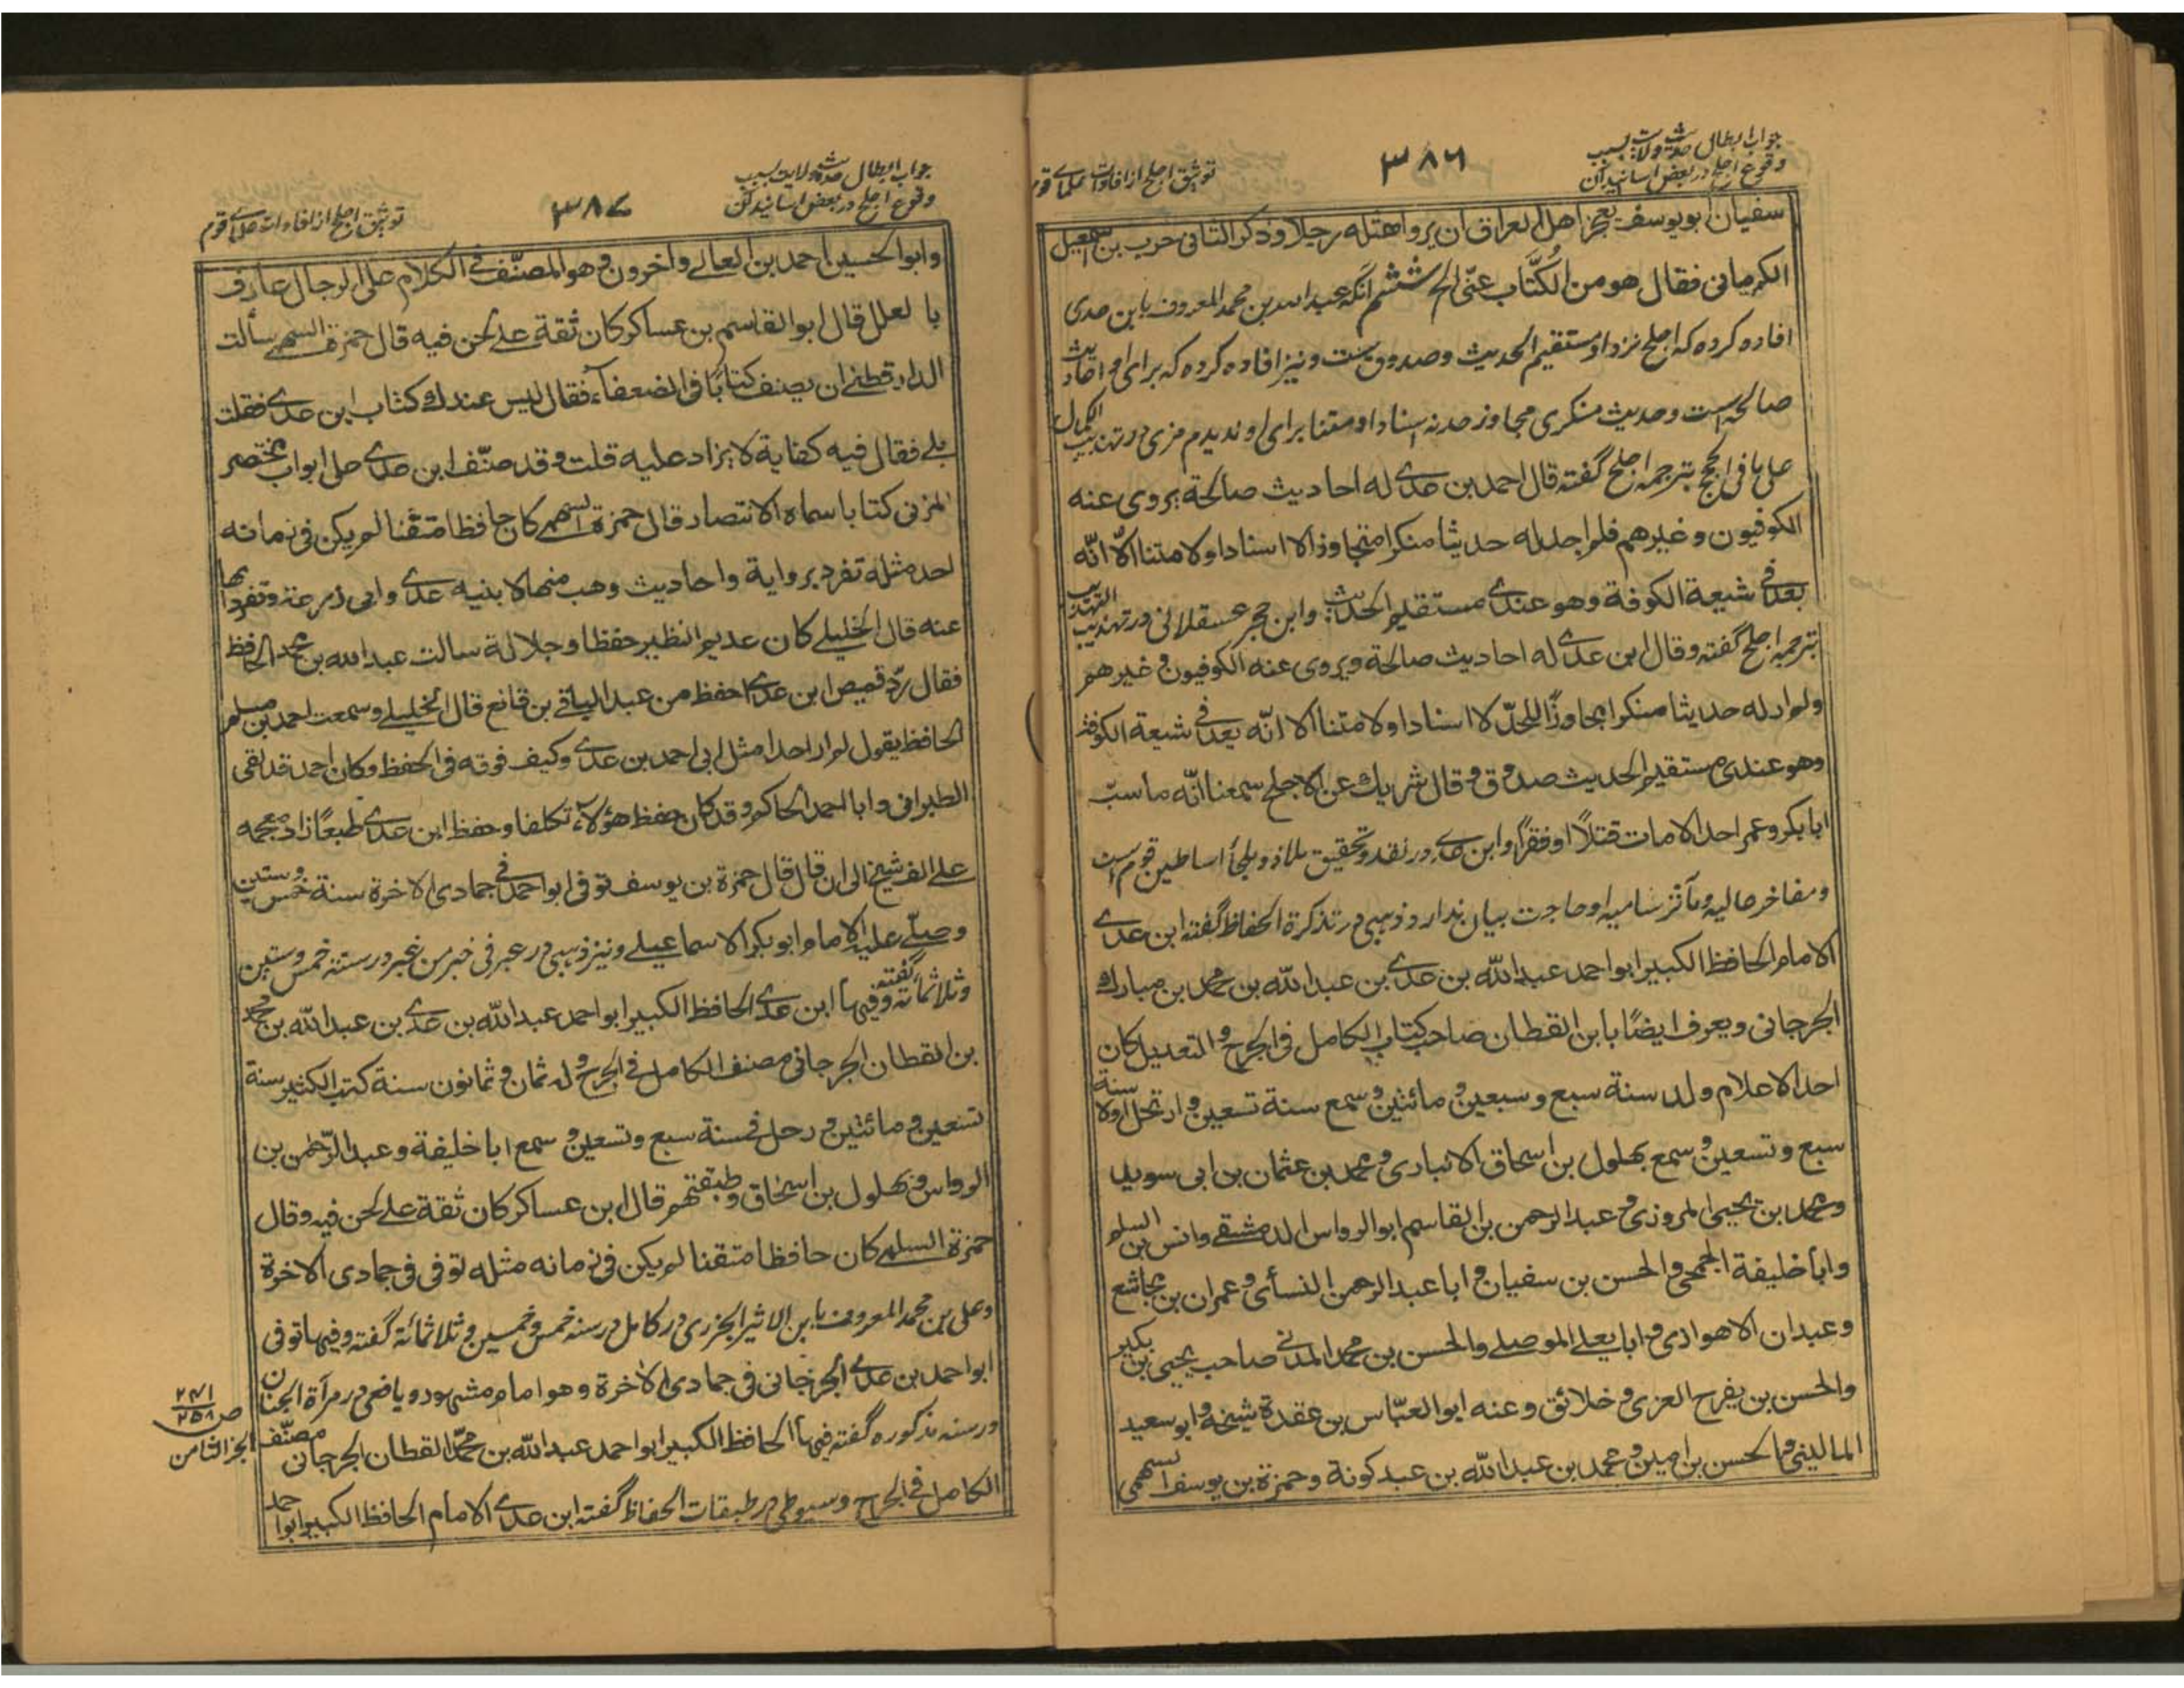 جواب ابطال حدیث ولایت بسبب
وقوع اجلح در بعض اسانید آن
۳۸۶
توثیق اجلح از افادات علمای قوم
سفیان ابو یوسف یعجز اهل العراق ان یروا مثله رجلا وذکر الثانی حرب بن اسمعیل
الکرمانی فقال هو من الکُتّاب عنّی الخ ششم آنکه عبد الله بن محمد المعروف بابن عدی
افاده کرده که اجلح نزد او مستقیم الحدیث وصدوق ست ونیز افاده کرده که برای او احادیث
صالحه است وحدیث منکری مجاوز حد نه اسنادا ومتنا برای او ندیدم مزی در تهذیب الکمال
علی ما فی الحج بترجمه اجلح گفته قال احمد بن عدی له احادیث صالحة یروی عنه
الکوفیون وغیرهم فلم اجد له حدیثا منکرا متجاوزا لا اسنادا ولا متنا الّا انّه
یعدّ فی شیعة الکوفة وهو عندی مستقیم الحدیث وابن حجر عسقلانی در تهذیب التهذیب
بترجمه اجلح گفته وقال ابن عدی له احادیث صالحة ویروی عنه الکوفیون وغیرهم
ولم ار له حدیثا منکرا مجاوزًا للحدّ لا اسنادا ولا متنا الا انّه یعدّ فی شیعة الکوفة
وهو عندی مستقیم الحدیث صدوق وقال شریك عن الاجلح سمعنا انّه ما سبّ
ابا بکر وعمر احد الا مات قتلًا او فقرًا وابن عدی در نقد وتحقیق ملاذ وملجأ اساطین قوم است
ومفاخر عالیه ومآثر سامیه او حاجت بیان ندارد وذهبی در تذکرة الحفاظ گفته ابن عدی
الامام الحافظ الکبیر ابو احمد عبد الله بن عدی بن عبد الله بن محمد بن مبارك
الجرجانی ویعرف ایضًا بابن القطان صاحب کتاب الکامل فی الجرح والتعدیل کان
احد الاعلام ولد سنة سبع وسبعین ومائتین وسمع سنة تسعین وارتحل اولا سنة
سبع وتسعین وسمع بهلول بن اسحاق الانباری ومحمد بن عثمان بن ابی سوید
ومحمد بن یحیی المروزی وعبد الرحمن بن القاسم ابو الرواس الدمشقی وانس بن السلم
وابا خلیفة الجمحی والحسن بن سفیان وابا عبد الرحمن النسائی وعمران بن مجاشع
وعبدان الاهوازی وابا یعلی الموصلی والحسن بن محمد المدنی صاحب یحیی بن بکیر
والحسن بن یفرح العزی وخلائق وعنه ابو العبّاس بن عقدة شیخه وابو سعید
المالینی والحسن بن امین ومحمد بن عبد الله بن عبد کونة وحمزة بن یوسف السهمی
جواب ابطال حدیث ولایت بسبب
وقوع اجلح در بعض اسانید آن
۳۸۷
توثیق اجلح از افادات علمای قوم
وابو الحسین احمد بن العالی وآخرون وهو المصنّف فی الکلام علی الرجال عارف
بالعلل قال ابو القاسم بن عساکر کان ثقة علی لحن فیه قال حمزة السهمی سألت
الدارقطنی ان یصنف کتابًا فی الضعفاء فقال الیس عندك کتاب ابن عدی فقلت
بلی فقال فیه کفایة لا یزاد علیه قلت وقد صنّف ابن عدی علی ابواب مختصر
المزنی کتابا سماه الانتصار قال حمزة السهمی کان حافظا متقنا لم یکن فی زمانه
احد مثله تفرد بروایة واحادیث وهب منها لابنیه عدی وابی زرعة وتفردا بها
عنه قال الخلیلی کان عدیم النظیر حفظا وجلالة سالت عبد الله بن محمد الحافظ
فقال زرّ قمیص ابن عدی احفظ من عبد الباقی بن قانع قال الخلیلی وسمعت احمد بن مسلم
الحافظ یقول لم ار احدا مثل ابی احمد بن عدی وکیف فوقه فی الحفظ وکان احمد قد لقی
الطبرانی وابا احمد الحاکم وقد کان حفظ هؤلاء تکلفا وحفظ ابن عدی طبعًا زاد معجمه
علی الف شیخ الی ان قال قال حمزة بن یوسف توفی ابو احمد فی جمادی الاخرة سنة خمس وستین
وصلّی علیه الامام ابو بکر الاسماعیلی ونیز ذهبی در عبر فی خبر من غبر در سنة خمس وستین
وثلاثمائة گفته وفیها ابن عدی الحافظ الکبیر ابو احمد عبد الله بن عدی بن عبد الله بن محمد
بن القطان الجرجانی مصنف الکامل فی الجرح وله ثمان وثمانون سنة کتب الکثیر سنة
تسعین ومائتین ورحل فی سنة سبع وتسعین وسمع ابا خلیفة وعبد الرّحمن بن
الرواس وبهلول بن اسحاق وطبقتهم قال ابن عساکر کان ثقة علی لحن فیه وقال
حمزة السهمی کان حافظا متقنا لم یکن فی زمانه مثله توفی فی جمادی الاخرة
وعلی بن محمد المعروف بابن الاثیر الجزری در کامل در سنه خمس وخمسین وثلاثمائة گفته وفیها توفی
ابو احمد بن عدی الجرجانی فی جمادی الاخرة وهو امام مشهور ویافعی در مرآة الجنان
در سنه مذکوره گفته فیها الحافظ الکبیر ابو احمد عبد الله بن محمّد القطان الجرجانی مصنّف
الکامل فی الجرح وسیوطی در طبقات الحفاظ گفته ابن عدی الامام الحافظ الکبیر ابو احمد
ص ۲۵۸
الجزء الثامن